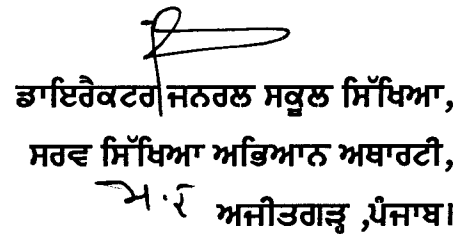 ਡਾਇਰੈਕਟਰ ਜਨਰਲ ਸਕੂਲ ਸਿੱਖਿਆ,
ਸਰਵ ਸਿੱਖਿਆ ਅਭਿਆਨ ਅਥਾਰਟੀ,
ਅਜੀਤਗੜ੍ਹ ,ਪੰਜਾਬ।